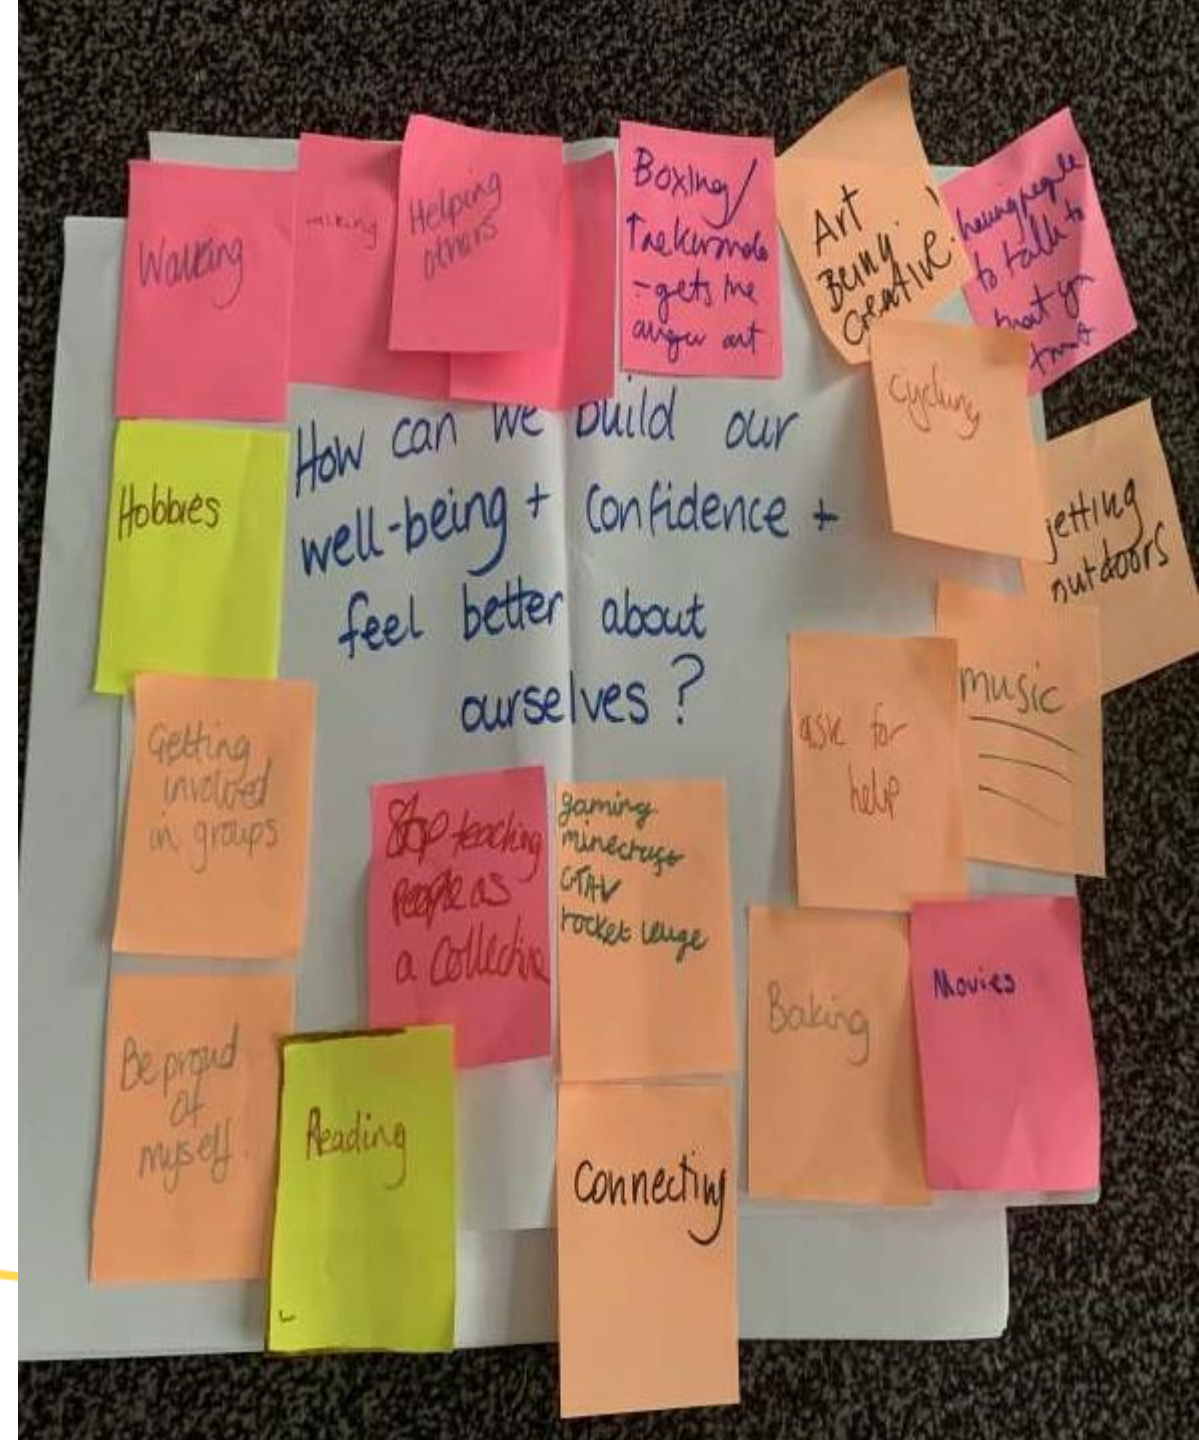 Walking
Helping
others
Boxing/
Taekwondo
- gets the
anger out
Art
Being
Creative!
having people
to talk to
that you
trust
Cycling
getting
outdoors
How can we build our
well-being + confidence +
feel better about
ourselves?
Hobbies
music
ask for
help
Getting
involved
in groups
Stop teaching
people as
a collective
gaming
minecraft
GTAV
rocket leuge
Baking
Movies
Be proud
of
myself.
Reading
Connecting